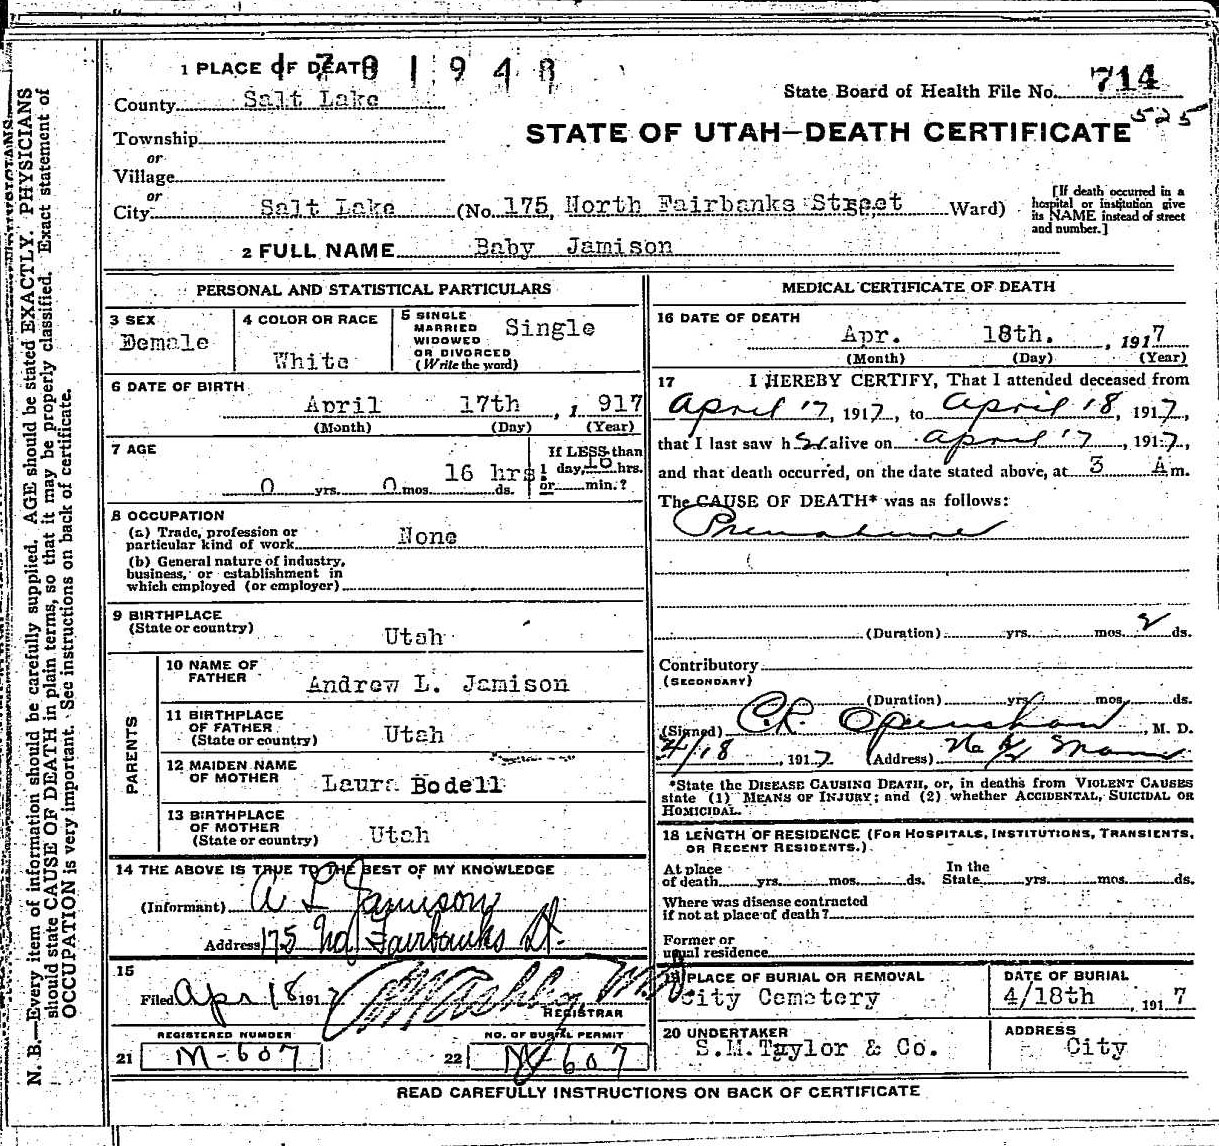 1 PLACE OF DEATH
1701940
State Board of Health File No. 714
525
County Salt Lake
STATE OF UTAH—DEATH CERTIFICATE
Township
or
Village
or
City Salt Lake (No. 175 North Fairbanks Street Ward)
[If death occurred in a hospital or institution give its NAME instead of street and number.]
2 FULL NAME Baby Jamison
PERSONAL AND STATISTICAL PARTICULARS
3 SEX
Female
4 COLOR OR RACE
White
5 SINGLE MARRIED WIDOWED OR DIVORCED (Write the word)
Single
6 DATE OF BIRTH
April 17th, 1917
(Month) (Day) (Year)
7 AGE
0 yrs. 0 mos. 16 hrs. ds.
If LESS than 1 day, 16 hrs. or min.?
8 OCCUPATION
(a) Trade, profession or particular kind of work None
(b) General nature of industry, business, or establishment in which employed (or employer)
9 BIRTHPLACE
(State or country) Utah
PARENTS
10 NAME OF FATHER Andrew L. Jamison
11 BIRTHPLACE OF FATHER (State or country) Utah
12 MAIDEN NAME OF MOTHER Laura Bodell
13 BIRTHPLACE OF MOTHER (State or country) Utah
14 THE ABOVE IS TRUE TO THE BEST OF MY KNOWLEDGE
(Informant) A L Jamison
Address 175 No Fairbanks St.
15
Filed Apr 18 1917
REGISTRAR
REGISTERED NUMBER
21 M-607
NO. OF BURIAL PERMIT
22 M-607
MEDICAL CERTIFICATE OF DEATH
16 DATE OF DEATH
Apr. 18th. , 1917
(Month) (Day) (Year)
17 I HEREBY CERTIFY, That I attended deceased from
April 17, 1917, to April 18, 1917,
that I last saw her alive on April 17, 1917,
and that death occurred, on the date stated above, at 3 A m.
The CAUSE OF DEATH* was as follows:
Premature
(Duration) yrs. mos. 2 ds.
Contributory
(SECONDARY)
(Duration) yrs. mos. ds.
(Signed) C.R. Openshaw, M. D.
4/18, 1917 (Address)
*State the DISEASE CAUSING DEATH, or, in deaths from VIOLENT CAUSES
state (1) MEANS OF INJURY; and (2) whether ACCIDENTAL, SUICIDAL OR
HOMICIDAL.
18 LENGTH OF RESIDENCE (FOR HOSPITALS, INSTITUTIONS, TRANSIENTS,
OR RECENT RESIDENTS.)
At place of death yrs. mos. ds. In the State yrs. mos. ds.
Where was disease contracted
if not at place of death?
Former or
usual residence
19 PLACE OF BURIAL OR REMOVAL
City Cemetery
DATE OF BURIAL
4/18th, 1917
20 UNDERTAKER
S.M.Taylor & Co.
ADDRESS
City
READ CAREFULLY INSTRUCTIONS ON BACK OF CERTIFICATE
N. B.—Every item of information should be carefully supplied. AGE should be stated EXACTLY. PHYSICIANS
should state CAUSE OF DEATH in plain terms, so that it may be properly classified. Exact statement of
OCCUPATION is very important. See instructions on back of certificate.